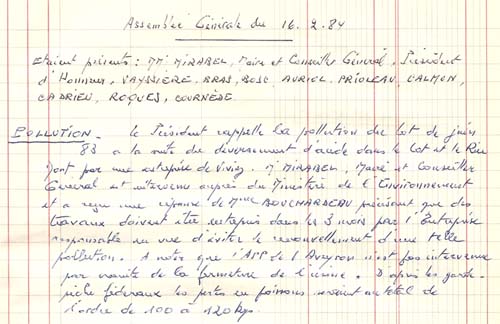 Assemblée Générale du 16.2.84
Etaient présents : MM. MIRABEL, Maire et Conseiller Général, Président
d'Honneur, VAYSSIÈRE, BRAS, BOSC, AURIOL, PRIOLEAU, CALMON,
CADRIEU, ROQUES, COURNÈDE.
POLLUTION - le Président rappelle la pollution du Lot de juin
83 à la suite du déversement d'acide dans le Lot et le Riou
Mort par une entreprise de Viviez. Mr MIRABEL, Maire et Conseiller
Général est intervenu auprès du Ministère de l'Environnement
et a reçu une réponse de Mme BOUCHARDEAU précisant que des
travaux doivent être entrepris dans les 3 mois par l'Entreprise
responsable en vue d'éviter le renouvellement d'une telle
pollution. A noter que l'APP de l'Aveyron n'est pas intervenue
par crainte de la fermeture de l'usine. D'après les gardes
pêche fédéraux les pertes en poissons seraient au total de
l'ordre de 100 à 120 kgs.